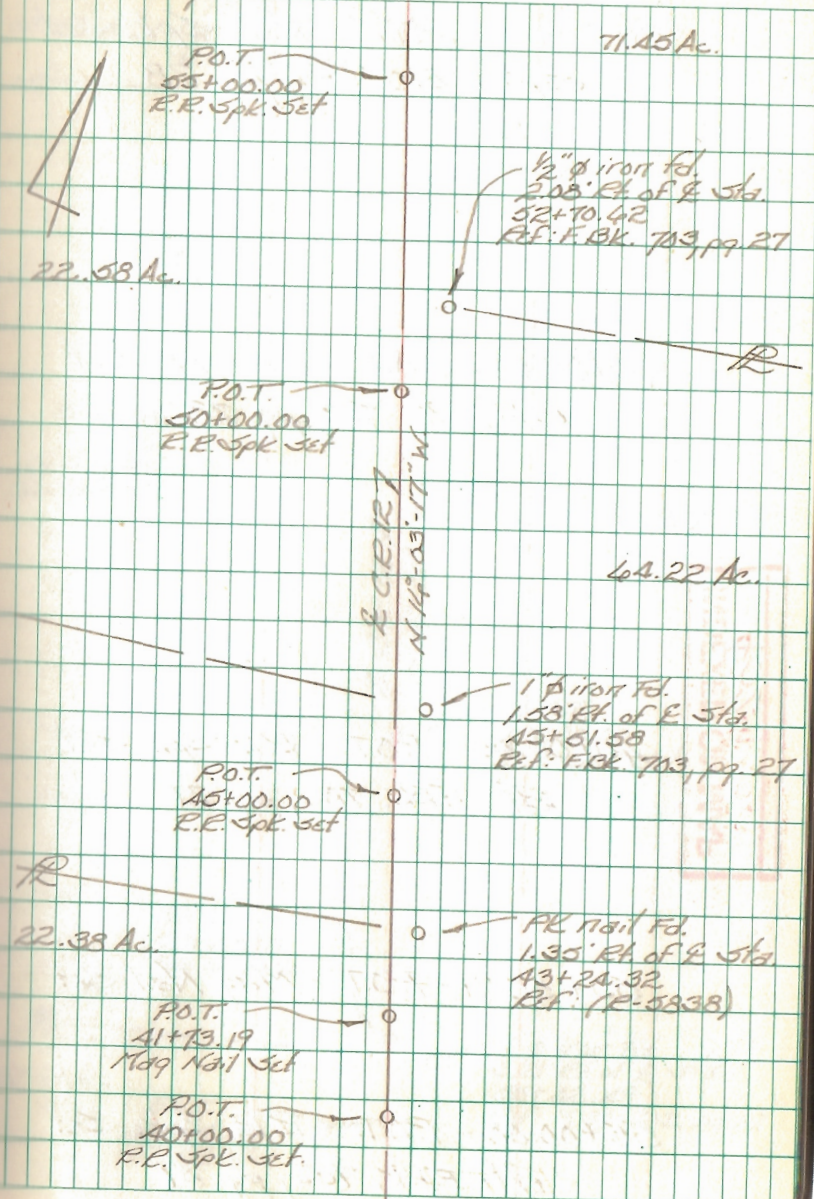 71.45 Ac.
P.O.T.
55+00.00
R.R. Spk. Set
1/2" ϕ iron Fd.
2.08' Rt. of ℄ Sta.
52+70.62
Ref: F.BK. 703, pg. 27
22.58 Ac.
PL
P.O.T.
50+00.00
R.R. Spk. Set
℄ C.R. 127
N 14°-03'-17" W
64.22 Ac.
1" ϕ iron Fd.
1.58' Rt. of ℄ Sta.
45+61.58
Ref: F.BK. 703, pg. 27
P.O.T.
45+00.00
R.R. Spk. Set
PL
PK nail Fd.
1.35' Rt. of ℄ Sta.
43+24.32
Ref: (R-5838)
22.38 Ac.
P.O.T.
41+73.19
Mag Nail Set
P.O.T.
40+00.00
R.R. Spk. Set.